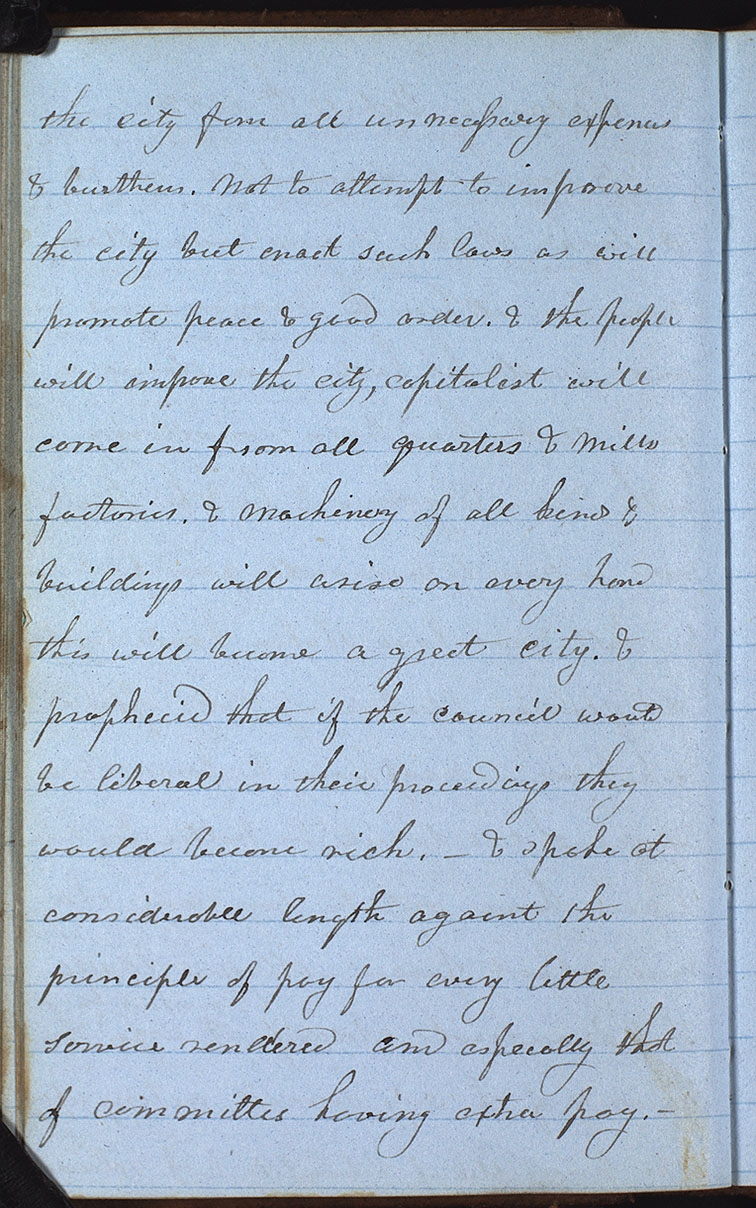 the city from all unnecessary expenses
& burthens. Not to attempt to improve
the city but enact such laws as will
promote peace & good order. & the people
will improve the city, capitalist will
come in from all quarters & mills
factories. & machinery of all kinds &
buildings will arise on every hand
this will become a great city. &
prophecied that if the council would
be liberal in their proceedings they
would become rich. — & spoke at
considerable length against the
principle of pay for every little
service rendered and especally that
of committes having extra pay. —